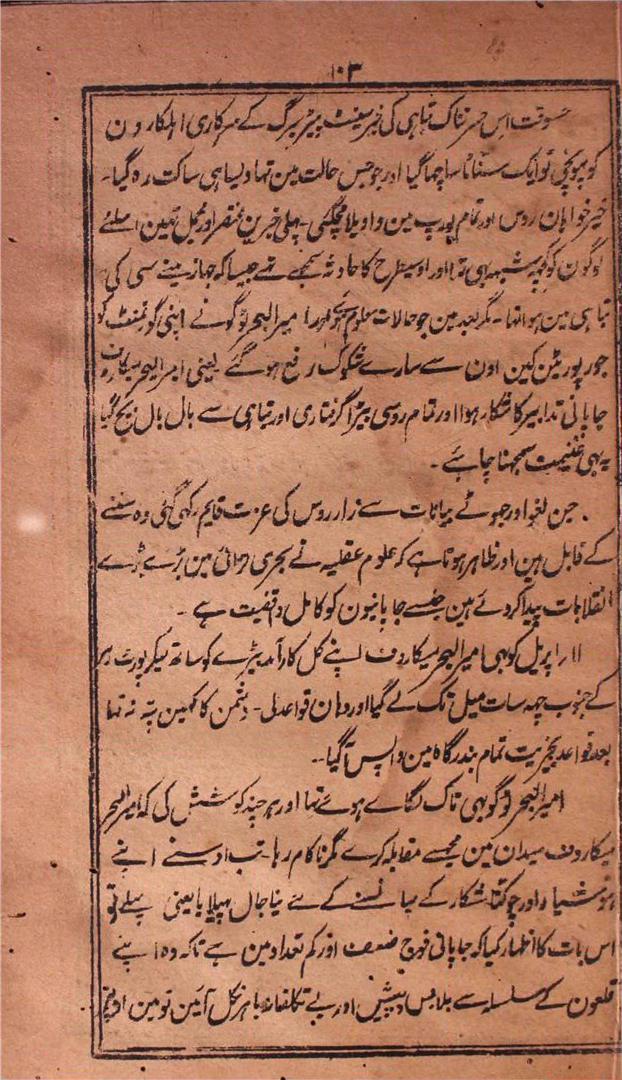 ۱۰۳
جسوقت اس حسرتناک تباہی کی خبر سینٹ پیٹرسبرگ کے سرکاری اہلکارون
کو پہونچی تو ایک سناٹا سا چھا گیا اور جو جس حالت مین تہا ویسا ہی ساکت رہ گیا۔
خیر خواہان روس اور تمام یورپ مین واویلا مچگئی۔ پہلی خبرین مختصر اور مجمل تہین اسلئے
لوگون کو کچہہ شبہہ ہی تہا اور اوسیطرح کا حادثہ سمجہے تہے جیسا کہ جہاز ینے سی کی
تباہی مین ہوا تہا۔ مگر بعد مین جو حالات معلوم ہوئے اور امیر البحر ٹوگو نے اپنی گورنمنٹ کو
جو رپورٹین کین اون سے سارے شکوک رفع ہو گئے یعنی امیر البحر میکاروف
جاپانی تدابیر کا شکار ہوا اور تمام روسی بیڑا گرفتاری اور تباہی سے بال بال بچ گیا
یہی غنیمت سمجہنا چاہئے۔
جن لغو اور جہوٹے بیانات سے زار روس کی عزت قایم رکہی گئی وہ سننے
کے قابل ہین اور ظاہر ہوتا ہے کہ علوم عقلیہ نے بحری لڑائی مین بڑے بڑے
انقلابات پیدا کر دئے ہین جنسے جاپانیون کو کامل واقفیت ہے۔
۱۱؍ اپریل کو بہی امیر البحر میکاروف اپنے کل کارآمد بیڑے کو ساتھ لیکر پورٹ آرتہر
کے جنوب چہہ سات میل تک لے گیا اور وہان قواعد لی۔ دشمن کا کہین پتہ نہ تہا
بعد قواعد بخیریت تمام بندرگاہ مین واپس آگیا۔
امیر البحر ٹوگو بہی تاک لگاے ہوئے تہا اور ہر چند کوشش کی کہ امیر البحر
میکاروف میدان مین مجہسے مقابلہ کرے مگر ناکام رہا۔ تب اوسنے اپنے
ہوشیار اور چوکنا شکار کے پہانسنے کے لئے نیا جال پہیلایا یعنی پہلے تو
اس بات کا اظہار کیا کہ جاپانی فوج ضعیف اور کم تعداد مین ہے تاکہ وہ اپنے
قلعون کے سلسلہ سے بلا پس و پیش اور بے تکلفانہ باہر نکل آئین تو مین